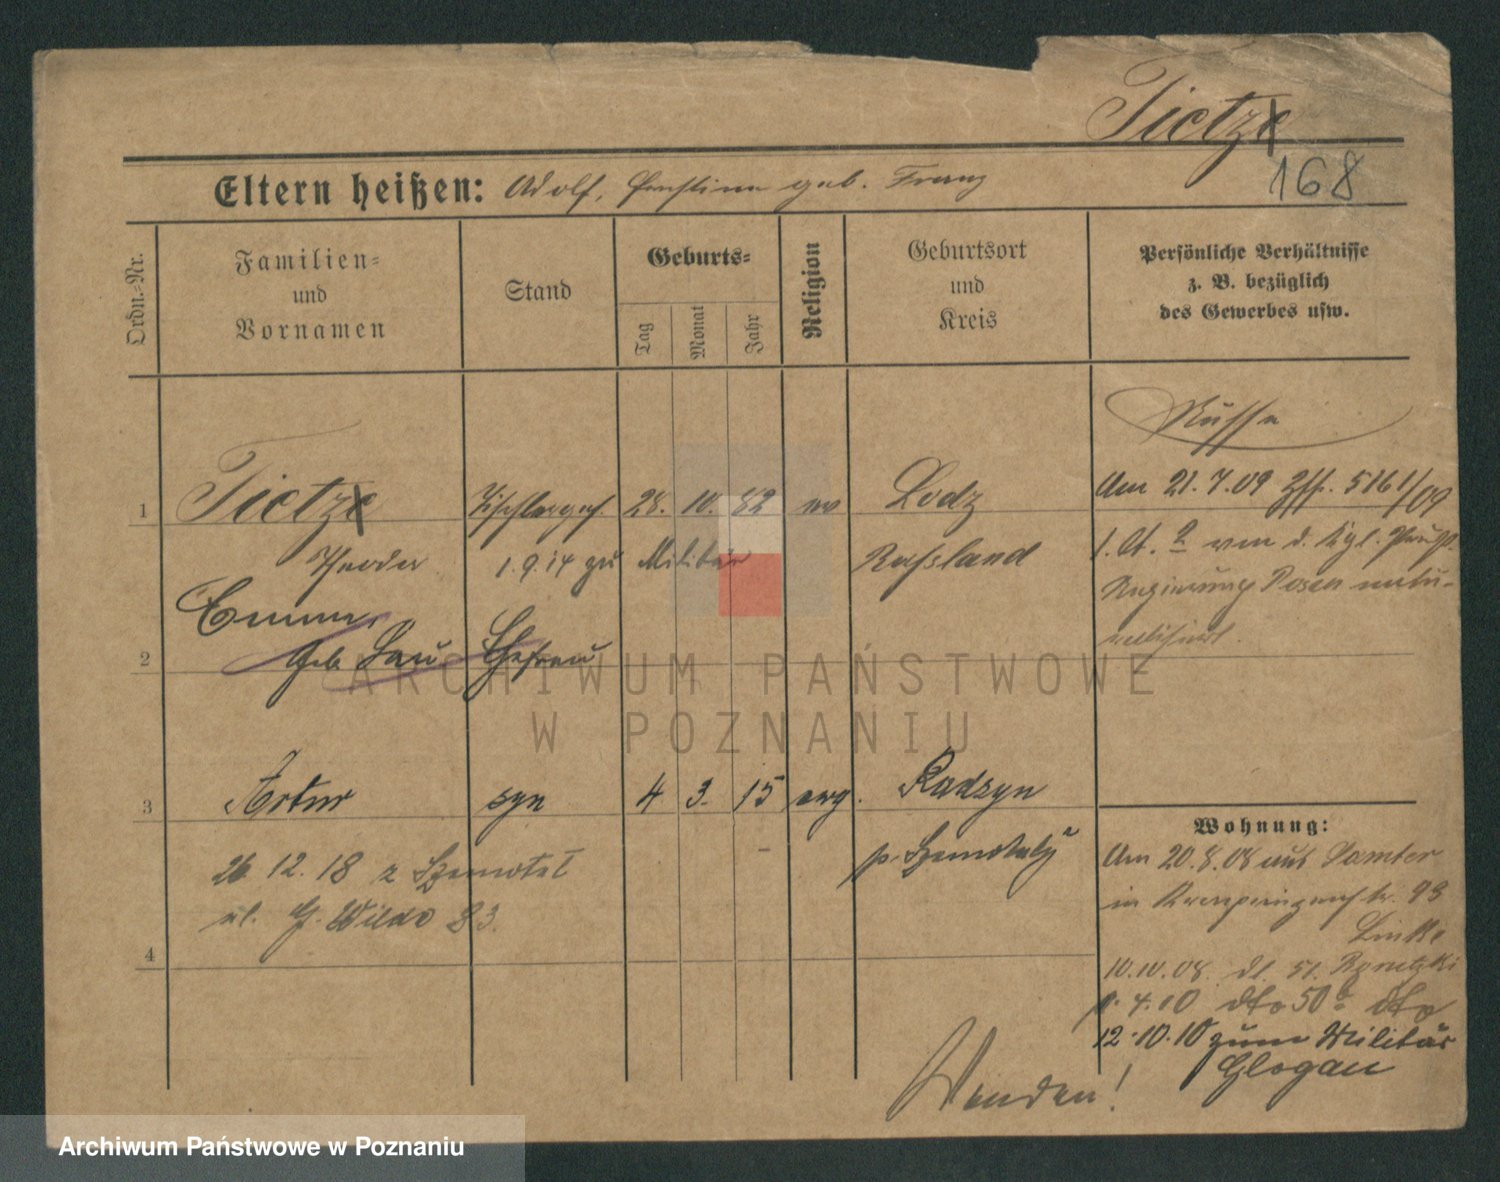 Tietze
168
Eltern heißen: Adolf, Ernstine geb. Franz
Ordn.-Nr.
Familien-
und
Vornamen
Stand
Geburts-
Tag
Monat
Jahr
Religion
Geburtsort
und
Kreis
Persönliche Verhältnisse
z. B. bezüglich
des Gewerbes usw.
Russe
1 Tietze Tischlerges. 28. 10. 82 ev Lodz
Am 21.7.09 5161/09
Theodor 1.9.14 zu Militär Russland
I. A. von d. Kgl. Preuß.
Regierung Posen natu-
ralisiert.
Emma
2 geb Lau Ehefrau
3 Artur syn 4 3. 15 ewg. Radzyn
p. Szamotuły
26 12. 18 z Szamotuł
ul. G. Wilda 83.
4
Wohnung:
Am 20.8.08 aus Samter
in Kronprinzenstr. 93
Linke
10.10.08. dt 51.
1.4.10 dto 50a dto
12.10.10 zum Militär
Glogau
Wenden!
ARCHIWUM PAŃSTWOWE
W POZNANIU
Archiwum Państwowe w Poznaniu